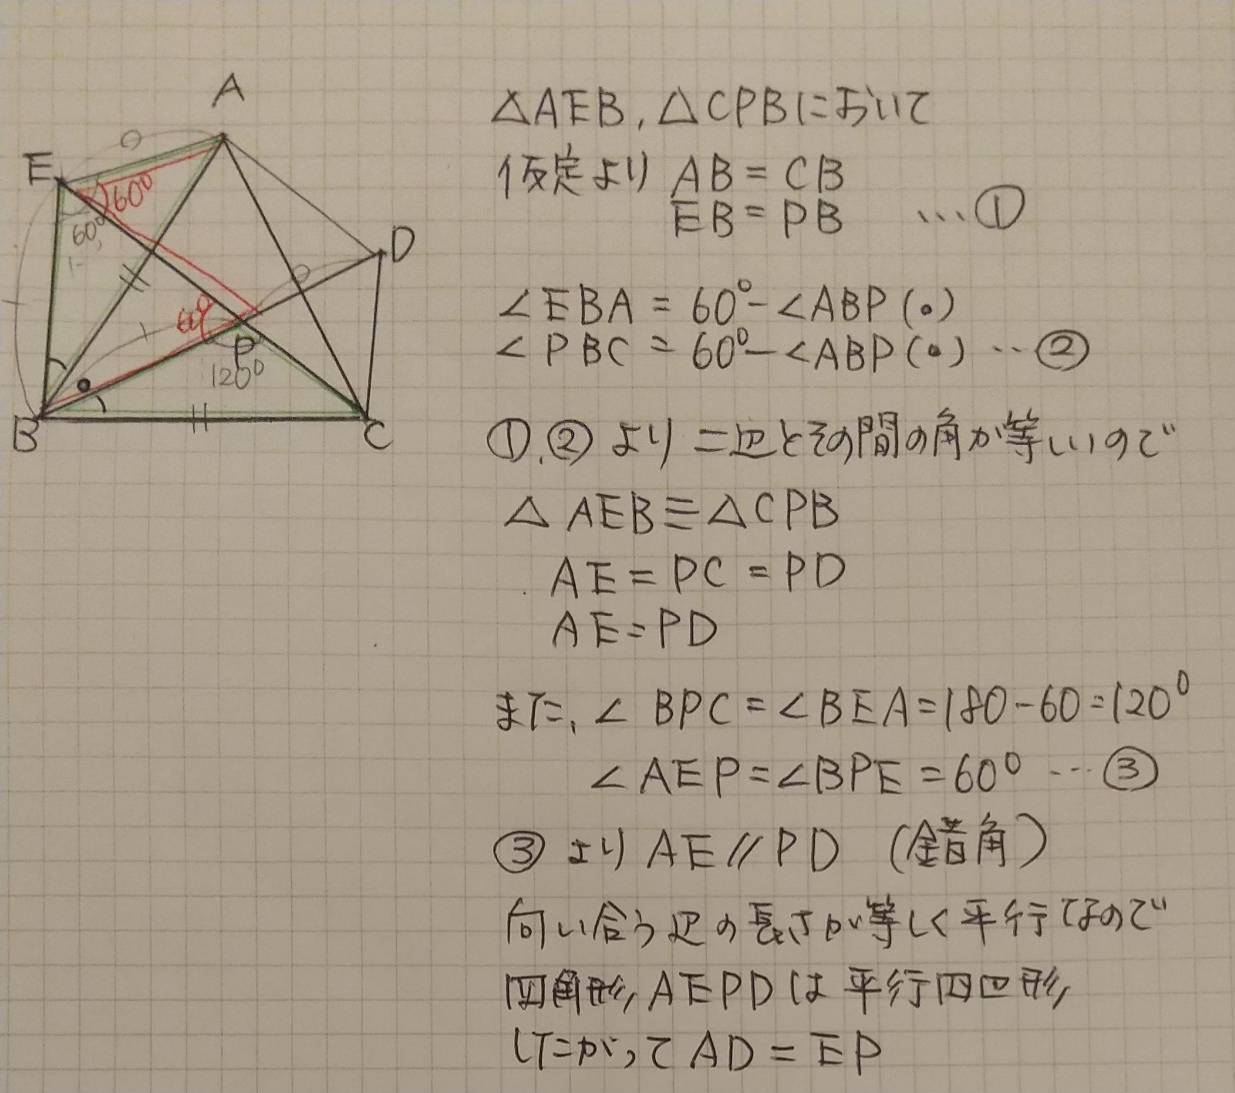 A
E
60°
60°
D
60°
P
120°
B
C
△AEB, △CPBにおいて
仮定より AB = CB
EB = PB …①
∠EBA = 60°-∠ABP(•)
∠PBC = 60°-∠ABP(•) …②
①,②より二辺とその間の角が等しいので
△AEB≡△CPB
AE = PC = PD
AE=PD
また、∠BPC=∠BEA=180-60=120°
∠AEP=∠BPE=60° …③
③よりAE//PD (錯角)
向い合う辺の長さが等しく平行なので
四角形AEPDは平行四辺形
したがってAD=EP